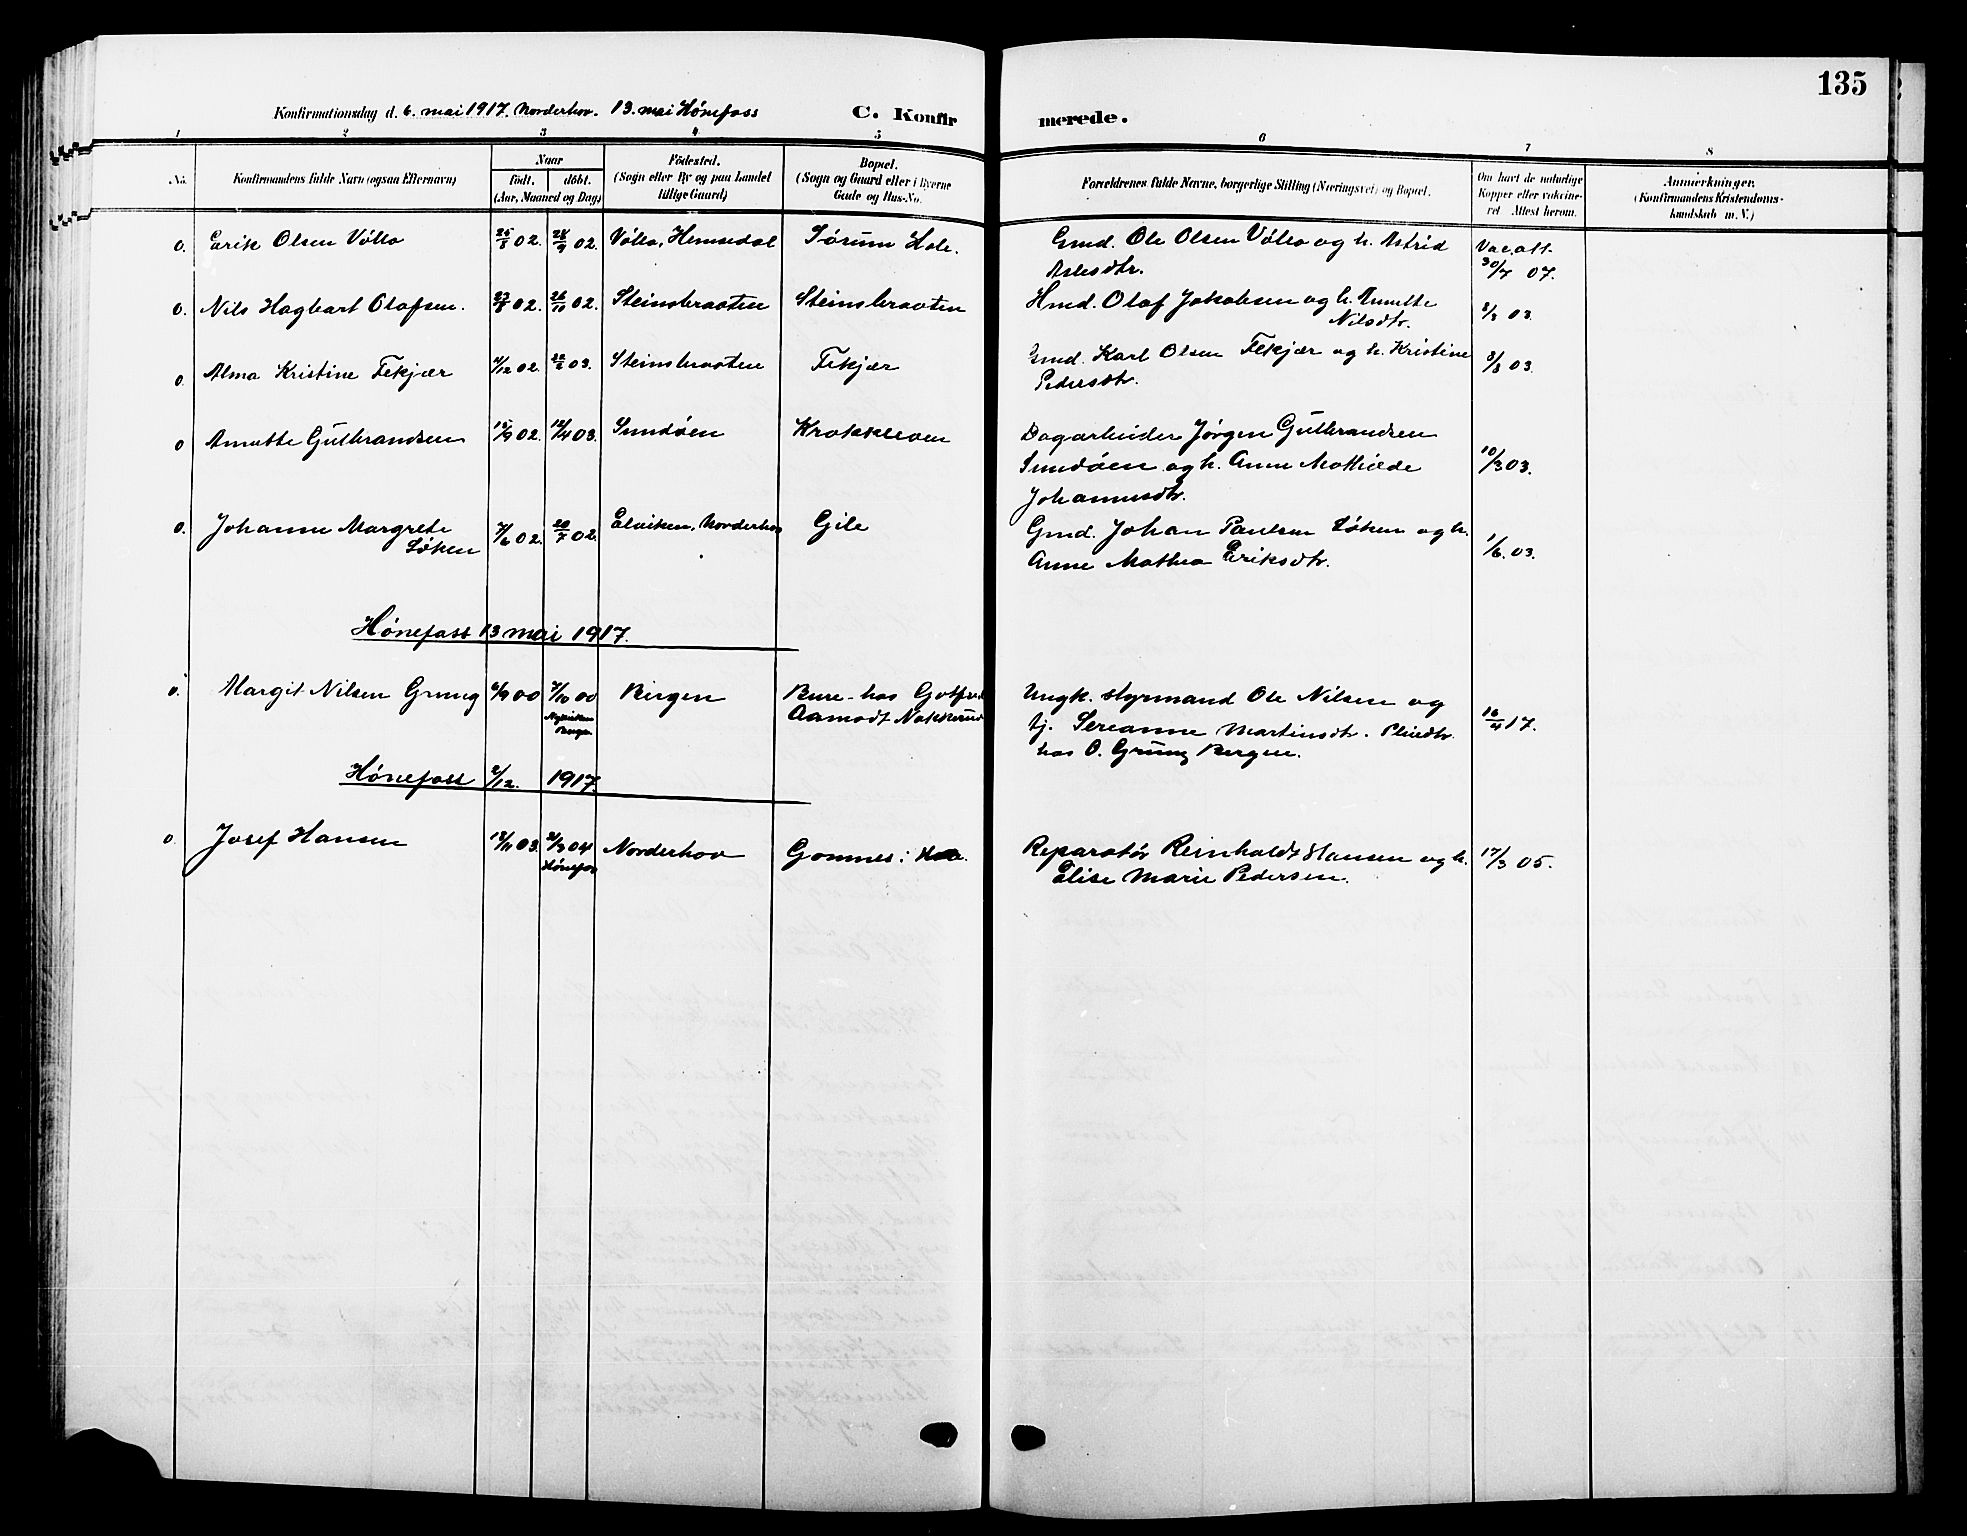 135
Konfirmationsdag d. 6. mai 1917. Norderhov. 13. mai Hønefoss
C. Konfirmerede.
1 2 3 4 5 6 7 8
No. Konfirmandens fulde Navn (ogsaa Efternavn)
Naar
Født. døbt.
(Aar, Maaned og Dag)
Fødested.
(Sogn eller By og paa Landet
tillige Gaard)
Bopæl.
(Sogn og Gaard eller i Byerne
Gade og Hus-No.
Forældrenes fulde Navne, borgerlige Stilling (Næringsvei) og Bopæl.
Om havt de naturlige
Kopper eller vaksine-
ret Attest herom.
Anmærkninger.
(Konfirmandens Kristendoms-
kundskab m. V.)
0. Erik Olsen Vølla 02. 28/9 02. Vølla, Hemsedal Sørum Hole. Gmd. Ole Olsen Vølla og h. Astrid
Aslesdtr. Vac. att. 30/7 07.
0. Nils Hagbart Olafsen. 27/8 02. 26/10 02. Steinsbraaten Steinsbraaten Hmd. Olaf Jakobsen og h. Annette
Nilsdtr. 8/3 03.
0. Alma Kristine Fekjær 4/12 02. 22/2 03. Steinsbraaten Fekjær Gmd. Karl Olsen Fekjær og h. Kristine
Pedersdtr. 8/3 03.
0 Annette Gulbrandsen 15/9 02. 12/4 03. Sundøen Krokkleven Dagarbeider Jørgen Gulbrandsen
Sundøen og h. Anne Mathilde
Johannesdtr. 10/3 03.
0. Johanne Margrete
Løken 7/6 02. 20/7 02. Elviken, Norderhov Gile Gmd. Johan Paulsen Løken og h.
Anne Mathea Eriksdtr. 1/6 03.
Hønefoss 13 mai 1917.
0. Margit Nilsen Grung 6/9 00 7/10 00 Bergen Bure - hos Gotfred
Aamodt Nakkerud Ungk. styrmand Ole Nilsen og
tj. Sereanne Martinsdtr.
hos O. Grung Bergen. 16/4 17.
Hønefoss 2/12. 1917.
0. Josef Hansen 18/11 03. 2/3 04 Hønefos Norderhov Gomnes i Hole. Reparatør Reinholdt Hansen og h.
Elise Marie Pedersen. 17/3 05.